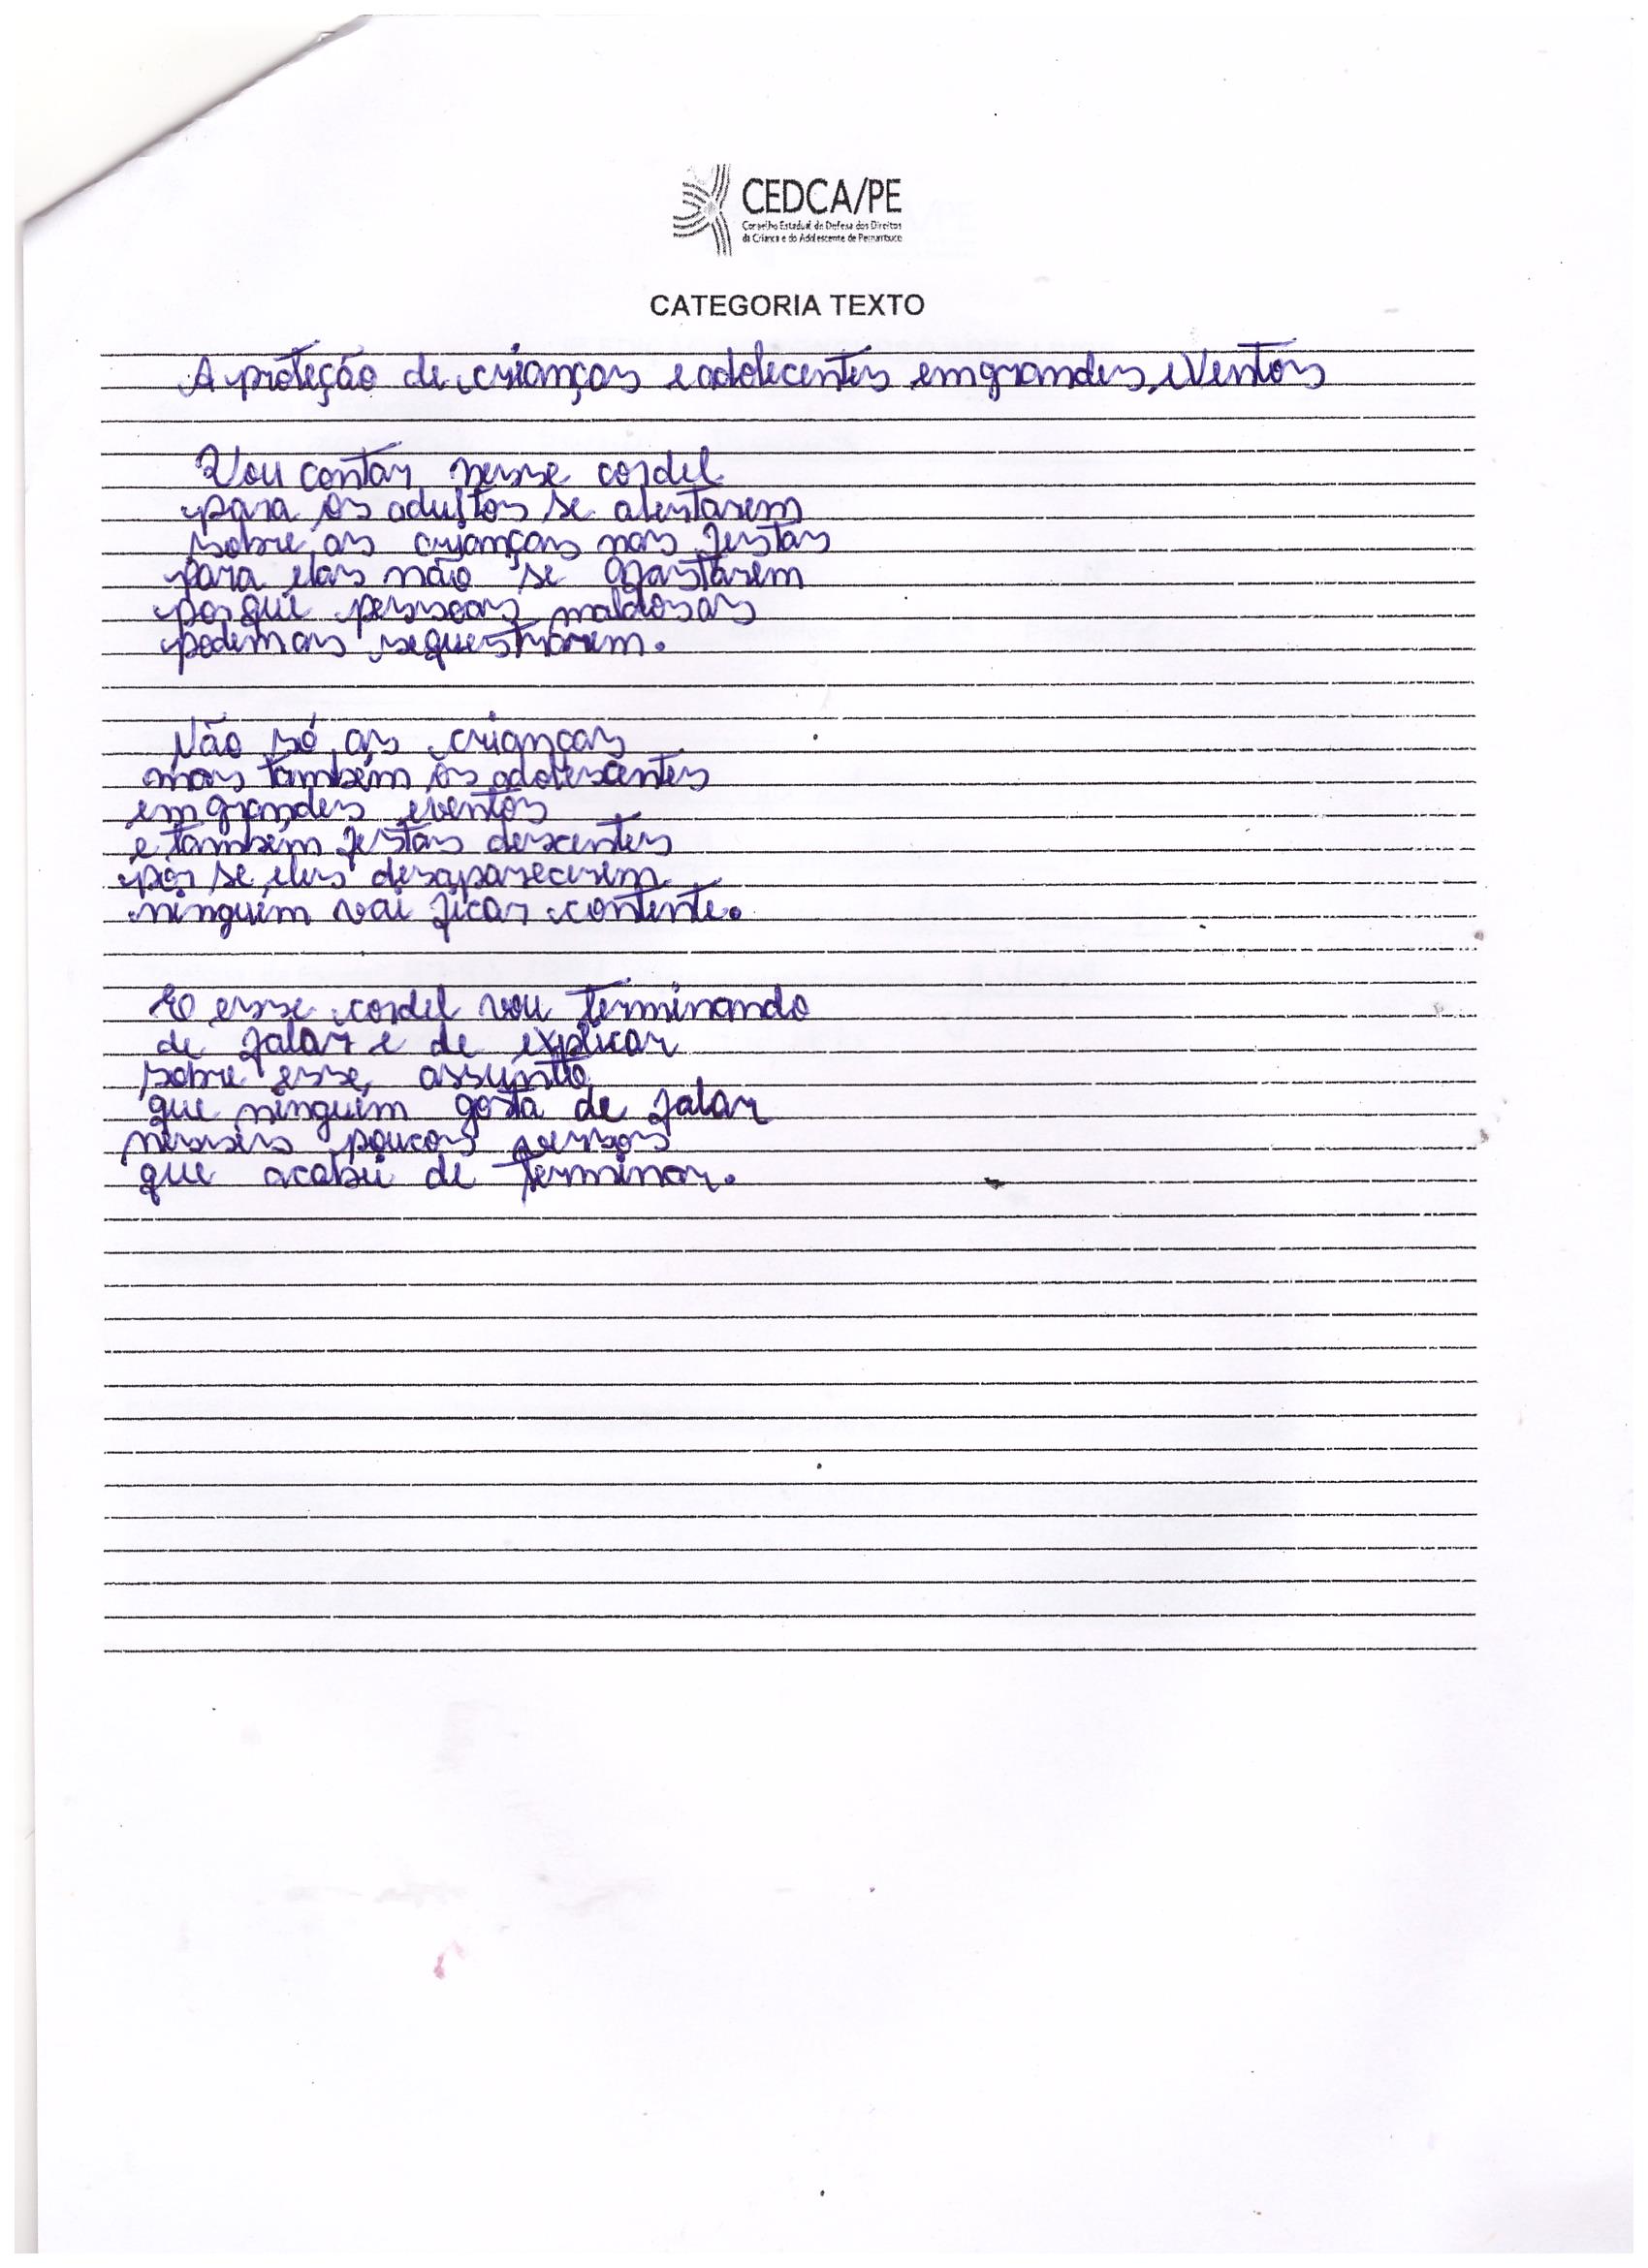 CEDCA/PE
Conselho Estadual de Defesa dos Direitos
da Criança e do Adolescente de Pernambuco
CATEGORIA TEXTO
A proteção de crianças e adolecentes em grandes eventos
Vou contar nesse cordel
para os adultos se alertarem
sobre as crianças nas festas
para elas não se afastarem
porque pessoas maldosas
podem as sequestrarem.
Não só as crianças
mas também os adolescentes
em grandes eventos
e também festas descentes
pois se eles desaparecerem
ninguém vai ficar contente.
E esse cordel vou terminando
de falar e de explicar
sobre esse assunto
que ninguém gosta de falar
nesses poucos versos
que acabei de terminar.